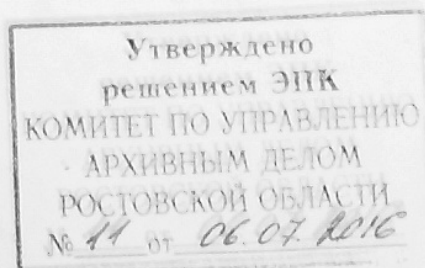 Утверждено
решением ЭПК
КОМИТЕТ ПО УПРАВЛЕНИЮ
АРХИВНЫМ ДЕЛОМ
РОСТОВСКОЙ ОБЛАСТИ
№ 11 от 06.07.2016